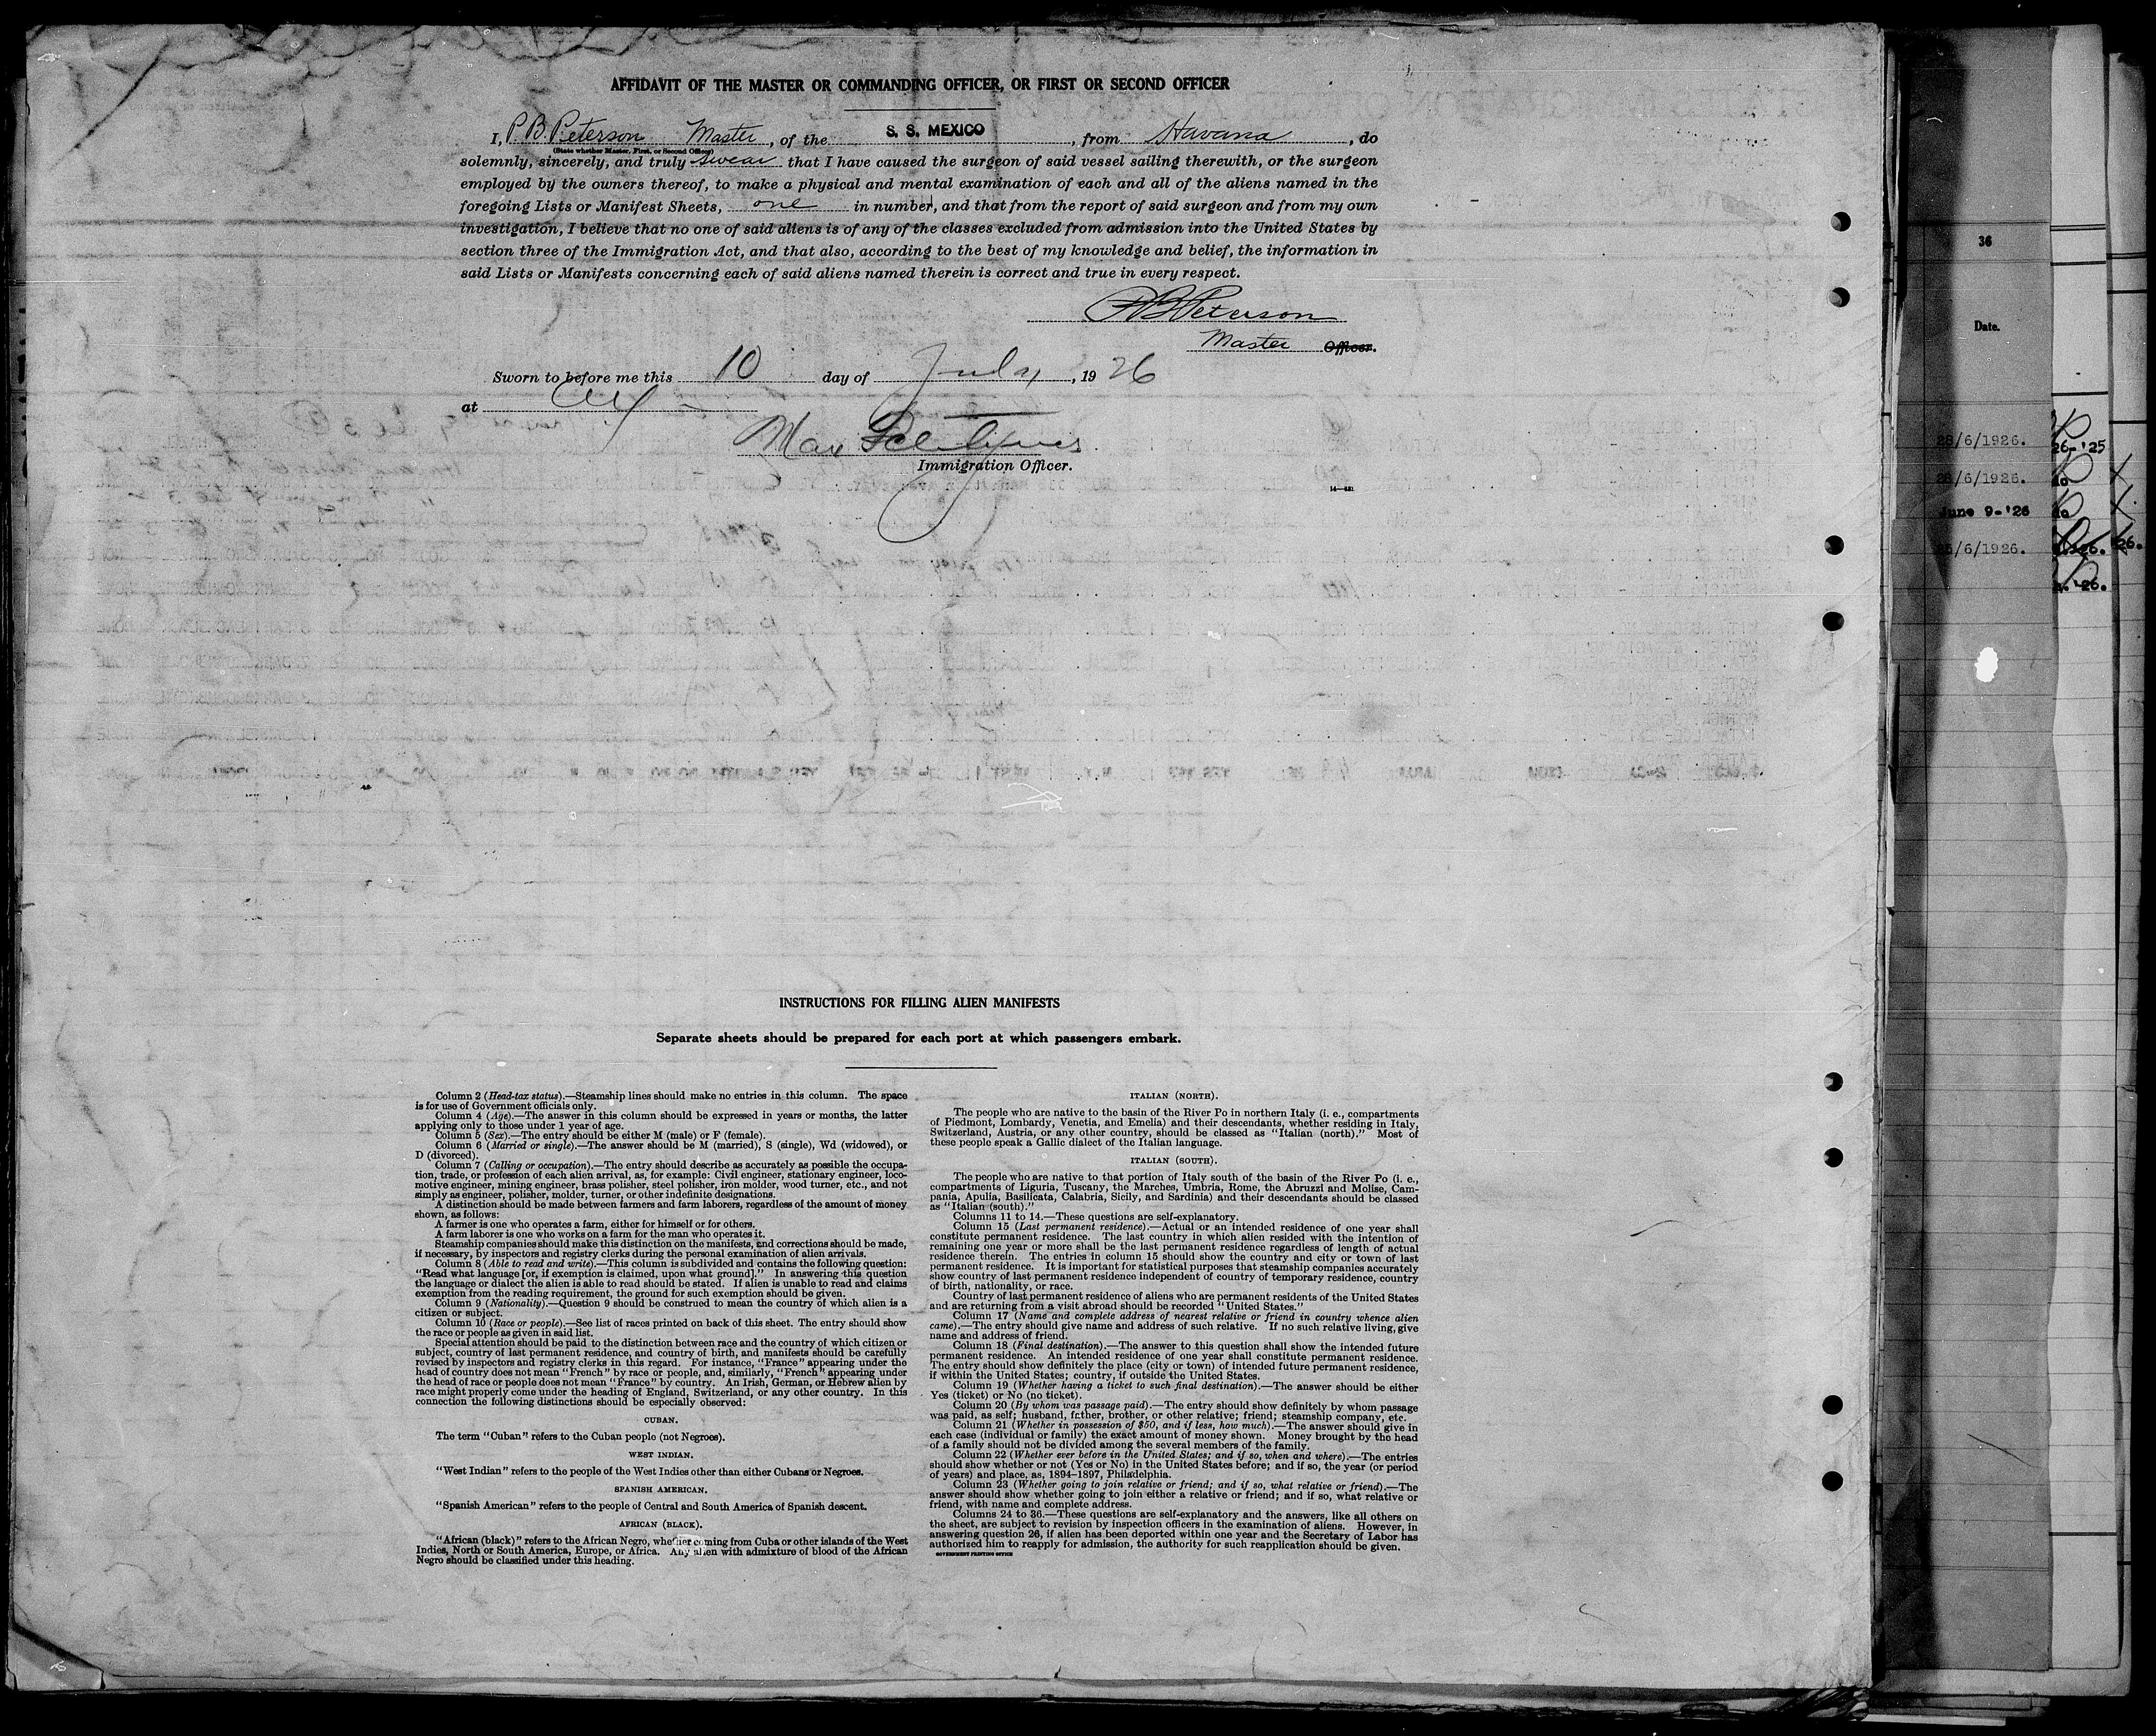 AFFIDAVIT OF THE MASTER OR COMMANDING OFFICER, OR FIRST OR SECOND OFFICER
I, P. B. Peterson Master, of the S. S. MEXICO, from Havana, do
(State whether Master, First, or Second Officer)
solemnly, sincerely, and truly swear that I have caused the surgeon of said vessel sailing therewith, or the surgeon
employed by the owners thereof, to make a physical and mental examination of each and all of the aliens named in the
foregoing Lists or Manifest Sheets, one in number, and that from the report of said surgeon and from my own
investigation, I believe that no one of said aliens is of any of the classes excluded from admission into the United States by
section three of the Immigration Act, and that also, according to the best of my knowledge and belief, the information in
said Lists or Manifests concerning each of said aliens named therein is correct and true in every respect.
P B Peterson
Master Officer.
Sworn to before me this 10 day of July, 19 26
at
Max
Immigration Officer.
INSTRUCTIONS FOR FILLING ALIEN MANIFESTS
Separate sheets should be prepared for each port at which passengers embark.
Column 2 (Head-tax status).—Steamship lines should make no entries in this column. The space
is for use of Government officials only.
Column 4 (Age).—The answer in this column should be expressed in years or months, the latter
applying only to those under 1 year of age.
Column 5 (Sex).—The entry should be either M (male) or F (female).
Column 6 (Married or single).—The answer should be M (married), S (single), Wd (widowed), or
D (divorced).
Column 7 (Calling or occupation).—The entry should describe as accurately as possible the occupa-
tion, trade, or profession of each alien arrival, as, for example: Civil engineer, stationary engineer, loco-
motive engineer, mining engineer, brass polisher, steel polisher, iron molder, wood turner, etc., and not
simply as engineer, polisher, molder, turner, or other indefinite designations.
A distinction should be made between farmers and farm laborers, regardless of the amount of money
shown, as follows:
A farmer is one who operates a farm, either for himself or for others.
A farm laborer is one who works on a farm for the man who operates it.
Steamship companies should make this distinction on the manifests, and corrections should be made,
if necessary, by inspectors and registry clerks during the personal examination of alien arrivals.
Column 8 (Able to read and write).—This column is subdivided and contains the following question:
"Read what language [or, if exemption is claimed, upon what ground]." In answering this question
the language or dialect the alien is able to read should be stated. If alien is unable to read and claims
exemption from the reading requirement, the ground for such exemption should be given.
Column 9 (Nationality).—Question 9 should be construed to mean the country of which alien is a
citizen or subject.
Column 10 (Race or people).—See list of races printed on back of this sheet. The entry should show
the race or people as given in said list.
Special attention should be paid to the distinction between race and the country of which citizen or
subject, country of last permanent residence, and country of birth, and manifests should be carefully
revised by inspectors and registry clerks in this regard. For instance, "France" appearing under the
head of country does not mean "French" by race or people, and, similarly, "French" appearing under
the head of race or people does not mean "France" by country. An Irish, German, or Hebrew alien by
race might properly come under the heading of England, Switzerland, or any other country. In this
connection the following distinctions should be especially observed:
CUBAN.
The term "Cuban" refers to the Cuban people (not Negroes).
WEST INDIAN.
"West Indian" refers to the people of the West Indies other than either Cubans or Negroes.
SPANISH AMERICAN.
"Spanish American" refers to the people of Central and South America of Spanish descent.
AFRICAN (BLACK).
"African (black)" refers to the African Negro, whether coming from Cuba or other islands of the West
Indies, North or South America, Europe, or Africa. Any alien with admixture of blood of the African
Negro should be classified under this heading.
ITALIAN (NORTH).
The people who are native to the basin of the River Po in northern Italy (i. e., compartments
of Piedmont, Lombardy, Venetia, and Emelia) and their descendants, whether residing in Italy,
Switzerland, Austria, or any other country, should be classed as "Italian (north)." Most of
these people speak a Gallic dialect of the Italian language.
ITALIAN (SOUTH).
The people who are native to that portion of Italy south of the basin of the River Po (i. e.,
compartments of Liguria, Tuscany, the Marches, Umbria, Rome, the Abruzzi and Molise, Cam-
pania, Apulia, Basilicata, Calabria, Sicily, and Sardinia) and their descendants should be classed
as "Italian (south)."
Columns 11 to 14.—These questions are self-explanatory.
Column 15 (Last permanent residence).—Actual or an intended residence of one year shall
constitute permanent residence. The last country in which alien resided with the intention of
remaining one year or more shall be the last permanent residence regardless of length of actual
residence therein. The entries in column 15 should show the country and city or town of last
permanent residence. It is important for statistical purposes that steamship companies accurately
show country of last permanent residence independent of country of temporary residence, country
of birth, nationality, or race.
Country of last permanent residence of aliens who are permanent residents of the United States
and are returning from a visit abroad should be recorded "United States."
Column 17 (Name and complete address of nearest relative or friend in country whence alien
came).—The entry should give name and address of such relative. If no such relative living, give
name and address of friend.
Column 18 (Final destination).—The answer to this question shall show the intended future
permanent residence. An intended residence of one year shall constitute permanent residence.
The entry should show definitely the place (city or town) of intended future permanent residence,
if within the United States; country, if outside the United States.
Column 19 (Whether having a ticket to such final destination).—The answer should be either
Yes (ticket) or No (no ticket).
Column 20 (By whom was passage paid).—The entry should show definitely by whom passage
was paid, as self; husband, father, brother, or other relative; friend; steamship company, etc.
Column 21 (Whether in possession of $50, and if less, how much).—The answer should give in
each case (individual or family) the exact amount of money shown. Money brought by the head
of a family should not be divided among the several members of the family.
Column 22 (Whether ever before in the United States; and if so, when and where).—The entries
should show whether or not (Yes or No) in the United States before; and if so, the year (or period
of years) and place, as, 1894–1897, Philadelphia.
Column 23 (Whether going to join relative or friend; and if so, what relative or friend).—The
answer should show whether going to join either a relative or friend; and if so, what relative or
friend, with name and complete address.
Columns 24 to 36.—These questions are self-explanatory and the answers, like all others on
the sheet, are subject to revision by inspection officers in the examination of aliens. However, in
answering question 26, if alien has been deported within one year and the Secretary of Labor has
authorized him to reapply for admission, the authority for such reapplication should be given.
GOVERNMENT PRINTING OFFICE
36
Date.
28/6/1926.
26-'25
28/6/1926.
do
June 9-'26
do
25/6/1926.
26.
'26.